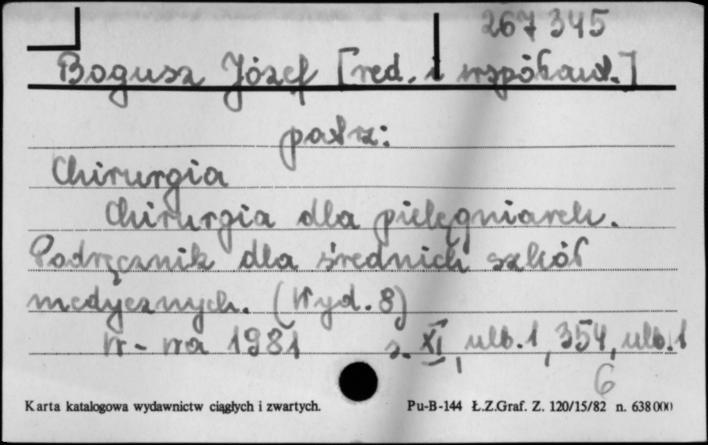 267345
Bogusz Józef [red. i współaut.]
patrz:
Chirurgia
Chirurgia dla pielęgniarek.
Podręcznik dla średnich szkół
medycznych. (Wyd. 8)
W-wa 1981 s. XI, ulb. 1, 354, ulb. 1
6
Karta katalogowa wydawnictw ciągłych i zwartych. Pu-B-144 Ł.Z.Graf. Z. 120/15/82 n. 638000